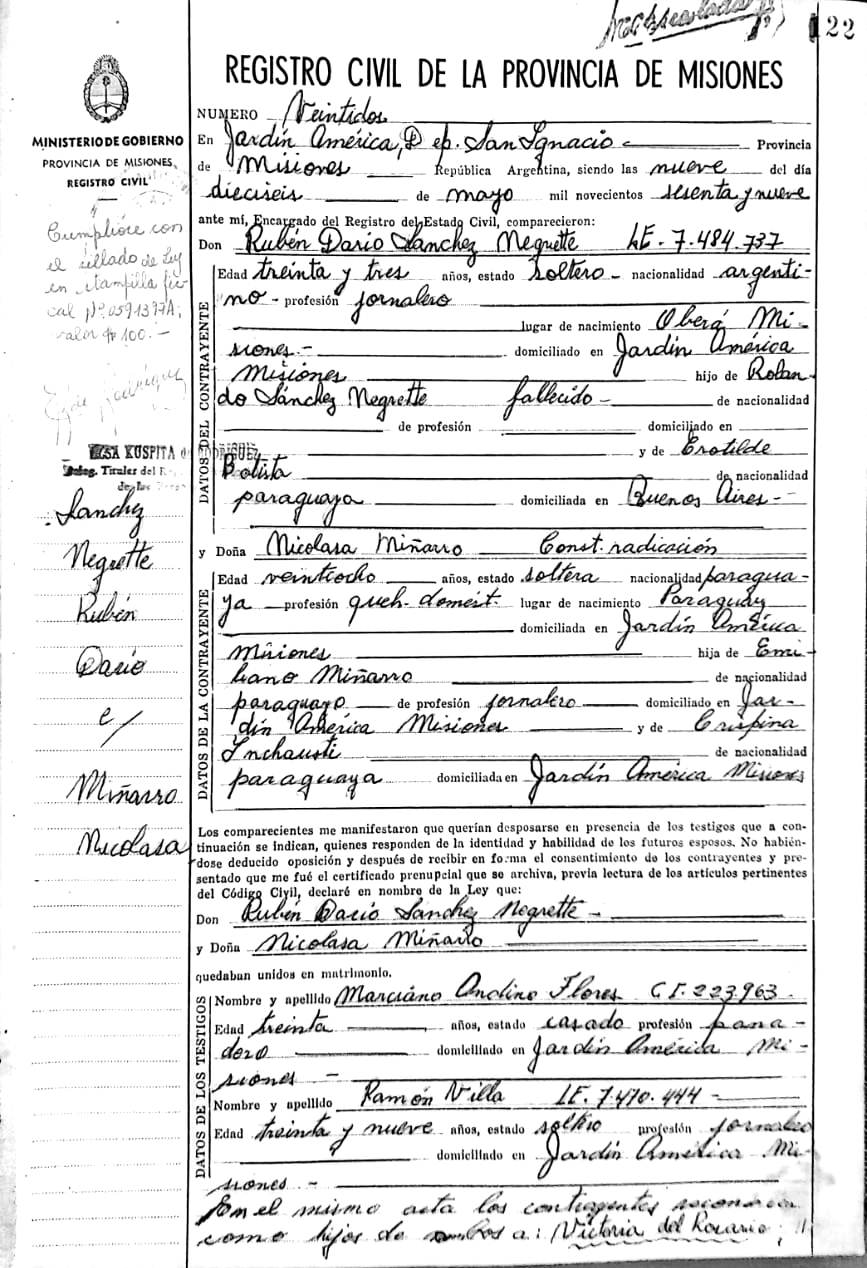 22
REGISTRO CIVIL DE LA PROVINCIA DE MISIONES
MINISTERIO DE GOBIERNO
PROVINCIA DE MISIONES
REGISTRO CIVIL
Cumplióse con
el sellado de Ley
en estampilla fis-
cal Nº 0591377A;
valor $ 100.-
KUSPITA
Deleg. Titular del
Sanchez
Negrette
Rubén
Dario
e/
Miñarro
Nicolasa
NUMERO Veintidos
En Jardín América, Dep. San Ignacio Provincia
de Misiones República Argentina, siendo las nueve del día
dieciseis de mayo mil novecientos sesenta y nueve
ante mí, Encargado del Registro del Estado Civil, comparecieron:
Don Rubén Dario Sanchez Negrette LE. 7.484.737
DATOS DEL CONTRAYENTE
Edad treinta y tres años, estado soltero - nacionalidad argenti-
no - profesión jornalero
lugar de nacimiento Oberá Mi-
siones.- domiciliado en Jardín América
Misiones hijo de Rolan-
do Sánchez Negrette fallecido - de nacionalidad
de profesión domiciliado en
y de Erotilde
Batista de nacionalidad
paraguaya domiciliada en Buenos Aires -
y Doña Nicolasa Miñarro Const. radicación
DATOS DE LA CONTRAYENTE
Edad veintiocho años, estado soltera nacionalidad paragua-
ya profesión queh. domést. lugar de nacimiento Paraguay
domiciliada en Jardín América
Misiones hija de Emi-
liano Miñarro de nacionalidad
paraguayo de profesión jornalero domiciliado en Jar-
dín América Misiones y de Crispina
Inchausti de nacionalidad
paraguaya domiciliada en Jardín América Misiones
Los comparecientes me manifestaron que querían desposarse en presencia de los testigos que a con-
tinuación se indican, quienes responden de la identidad y habilidad de los futuros esposos. No habién-
dose deducido oposición y después de recibir en forma el consentimiento de los contrayentes y pre-
sentado que me fué el certificado prenupcial que se archiva, previa lectura de los artículos pertinentes
del Código Civil, declaré en nombre de la Ley que:
Don Rubén Dario Sanchez Negrette -
y Doña Nicolasa Miñarro
quedaban unidos en matrimonio.
DATOS DE LOS TESTIGOS
Nombre y apellido Marciano Andino Flores CI. 223.963
Edad treinta años, estado casado profesión pana-
dero domiciliado en Jardín América Mi-
siones -
Nombre y apellido Ramón Villa LE. 7.470.444 -
Edad treinta y nueve años, estado soltero profesión jornalero
domiciliado en Jardín América Mi-
siones -
En el mismo acta los contrayentes reconocen
como hijos de ambos a: Victoria del Rosario;